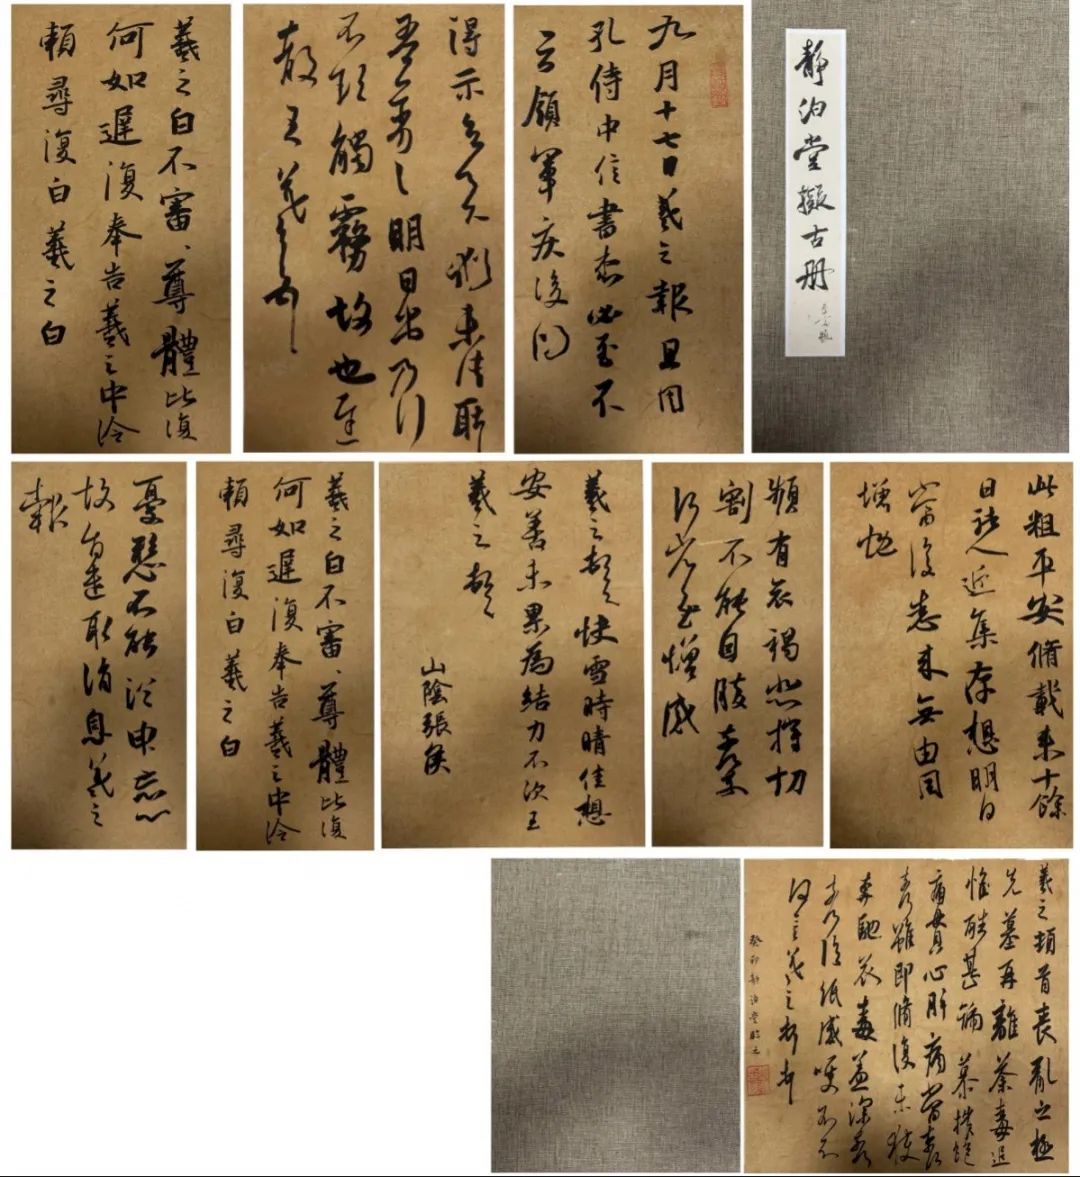 静泊堂擬古册
九月十七日羲之報且因
孔侍中信書想必至不
云領軍疾後問
得示知足下猶未佳耿
吾亦劣々明日出乃行
不欲觸霧故也遲
散王羲之頓首
羲之白不審、尊體比復
何如遲復奉告羲之中冷
賴尋復白羲之白
此粗平安脩載来十餘
日諸人近集存想明日
當復悉来無由同
增慨
頻有哀禍悲摧切
割不能自勝奈
何奈何省慰增感
羲之頓首快雪時晴佳想
安善未果為結力不次王
羲之頓首
山陰張侯
羲之白不審、尊體比復
何如遲復奉告羲之中冷
賴尋復白羲之白
憂懸不能須臾忘心
故旨遣取消息羲之
報
羲之頓首喪亂之極
先墓再離荼毒追
惟酷甚號慕摧絶
痛貫心肝痛當奈何
奈何雖即脩復未獲
奔馳哀毒益深奈何
奈何臨紙感哽不知
何言羲之頓首頓首
癸卯静泊堂臨之